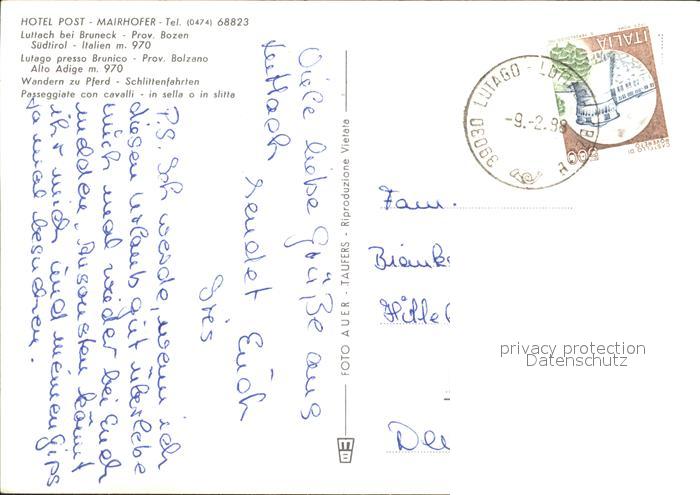 HOTEL POST - MAIRHOFER - Tel. (0474) 68823
Luttach bei Bruneck - Prov. Bozen
Südtirol - Italien m. 970
Lutago presso Brunico - Prov. Bolzano
Alto Adige m. 970
Wandern zu Pferd - Schlittenfahrten
Passeggiate con cavalli - in sella o in slitta
Viele liebe Grüße aus
Luttach sendet Euch
P.S. Ich werde, wenn ich
diesen Urlaub gut überlebe
mich mal wieder bei Euch
melden. Ansonsten könnt
ihr mich und meinen Gips
ja mal besuchen.
FOTO AUER - TAUFERS - Riproduzione Vietata
ITALIA
CASTELLO DI
ROVERETO
39030 LUTAGO
-9.-2.98
Fam.
privacy protection
Datenschutz